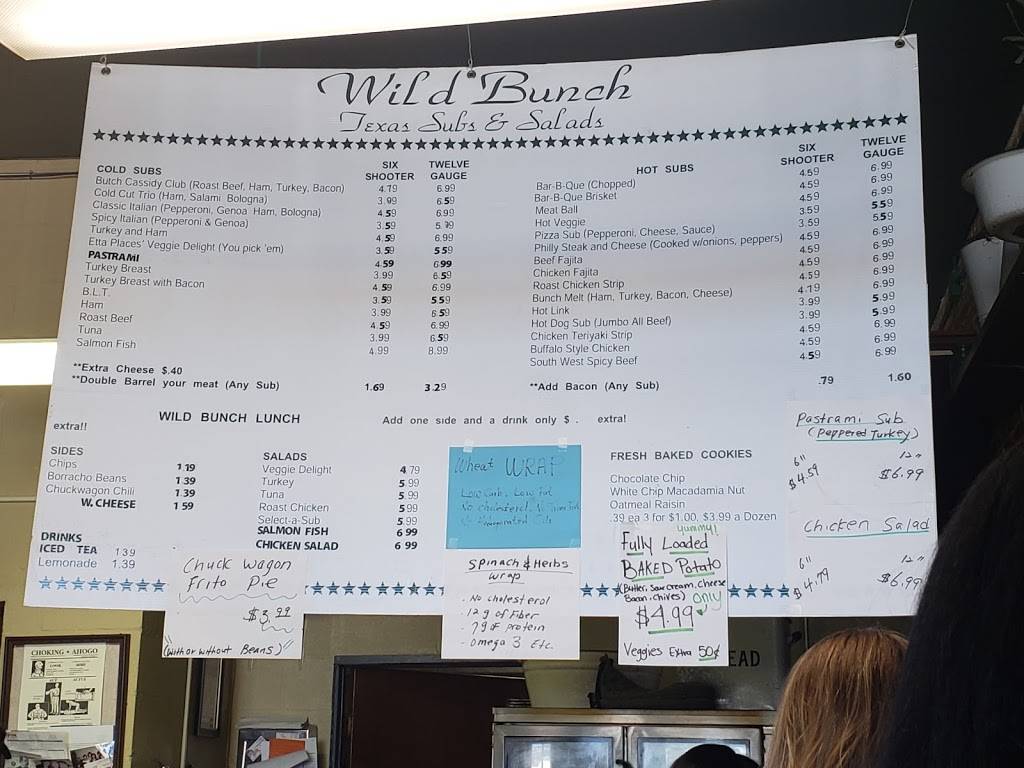 Wild Bunch
Texas Subs & Salads
COLD SUBS SIX SHOOTER TWELVE GAUGE
Butch Cassidy Club (Roast Beef, Ham, Turkey, Bacon) 4.79 6.99
Cold Cut Trio (Ham, Salami Bologna) 3.99 6.59
Classic Italian (Pepperoni, Genoa Ham, Bologna) 4.59 6.99
Spicy Italian (Pepperoni & Genoa) 3.59 5.79
Turkey and Ham 4.59 6.99
Etta Places' Veggie Delight (You pick 'em) 3.59 5.59
PASTRAMI 4.59 6.99
Turkey Breast 3.99 6.59
Turkey Breast with Bacon 4.59 6.99
B.L.T. 3.59 5.59
Ham 3.99 6.59
Roast Beef 4.59 6.99
Tuna 3.99 6.59
Salmon Fish 4.99 8.99
**Extra Cheese $.40
**Double Barrel your meat (Any Sub) 1.69 3.29
HOT SUBS SIX SHOOTER TWELVE GAUGE
Bar-B-Que (Chopped) 4.59 6.99
Bar-B-Que Brisket 4.59 6.99
Meat Ball 4.59 6.99
Hot Veggie 3.59 5.59
Pizza Sub (Pepperoni, Cheese, Sauce) 3.59 5.59
Philly Steak and Cheese (Cooked w/onions, peppers) 4.59 6.99
Beef Fajita 4.59 6.99
Chicken Fajita 4.59 6.99
Roast Chicken Strip 4.59 6.99
Bunch Melt (Ham, Turkey, Bacon, Cheese) 4.19 6.99
Hot Link 3.99 5.99
Hot Dog Sub (Jumbo All Beef) 3.99 5.99
Chicken Teriyaki Strip 4.59 6.99
Buffalo Style Chicken 4.59 6.99
South West Spicy Beef 4.59 6.99
**Add Bacon (Any Sub) .79 1.60
WILD BUNCH LUNCH Add one side and a drink only $ . extra!
extra!!
SIDES
Chips 1.19
Borracho Beans 1.39
Chuckwagon Chili 1.39
W.CHEESE 1 59
DRINKS
ICED TEA 1 39
Lemonade 1.39
SALADS
Veggie Delight 4 79
Turkey 5.99
Tuna 5.99
Roast Chicken 5 99
Select-a-Sub 5.99
SALMON FISH 6 99
CHICKEN SALAD 6 99
Wheat WRAP
Low Carb, Low Fat
No cholesterol,
FRESH BAKED COOKIES
Chocolate Chip
White Chip Macadamia Nut
Oatmeal Raisin
.39 ea 3 for $1.00, $3.99 a Dozen
Pastrami Sub
(Peppered Turkey)
6" 12"
$4.59 $6.99
Chicken Salad
6" 12"
$4.79 $6.99
Chuck Wagon
Frito Pie
$3.99
"(With or without Beans)"
Spinach & Herbs
Wrap
. No cholesterol
- 12 g of Fiber
- 7g of protein
- Omega 3 Etc.
yummy!!
Fully Loaded
BAKED Potato
(Butter, Sour Cream, Cheese
Bacon, Chives) only
$4.99
Veggies Extra 50¢
CHOKING • AHOGO
EAD